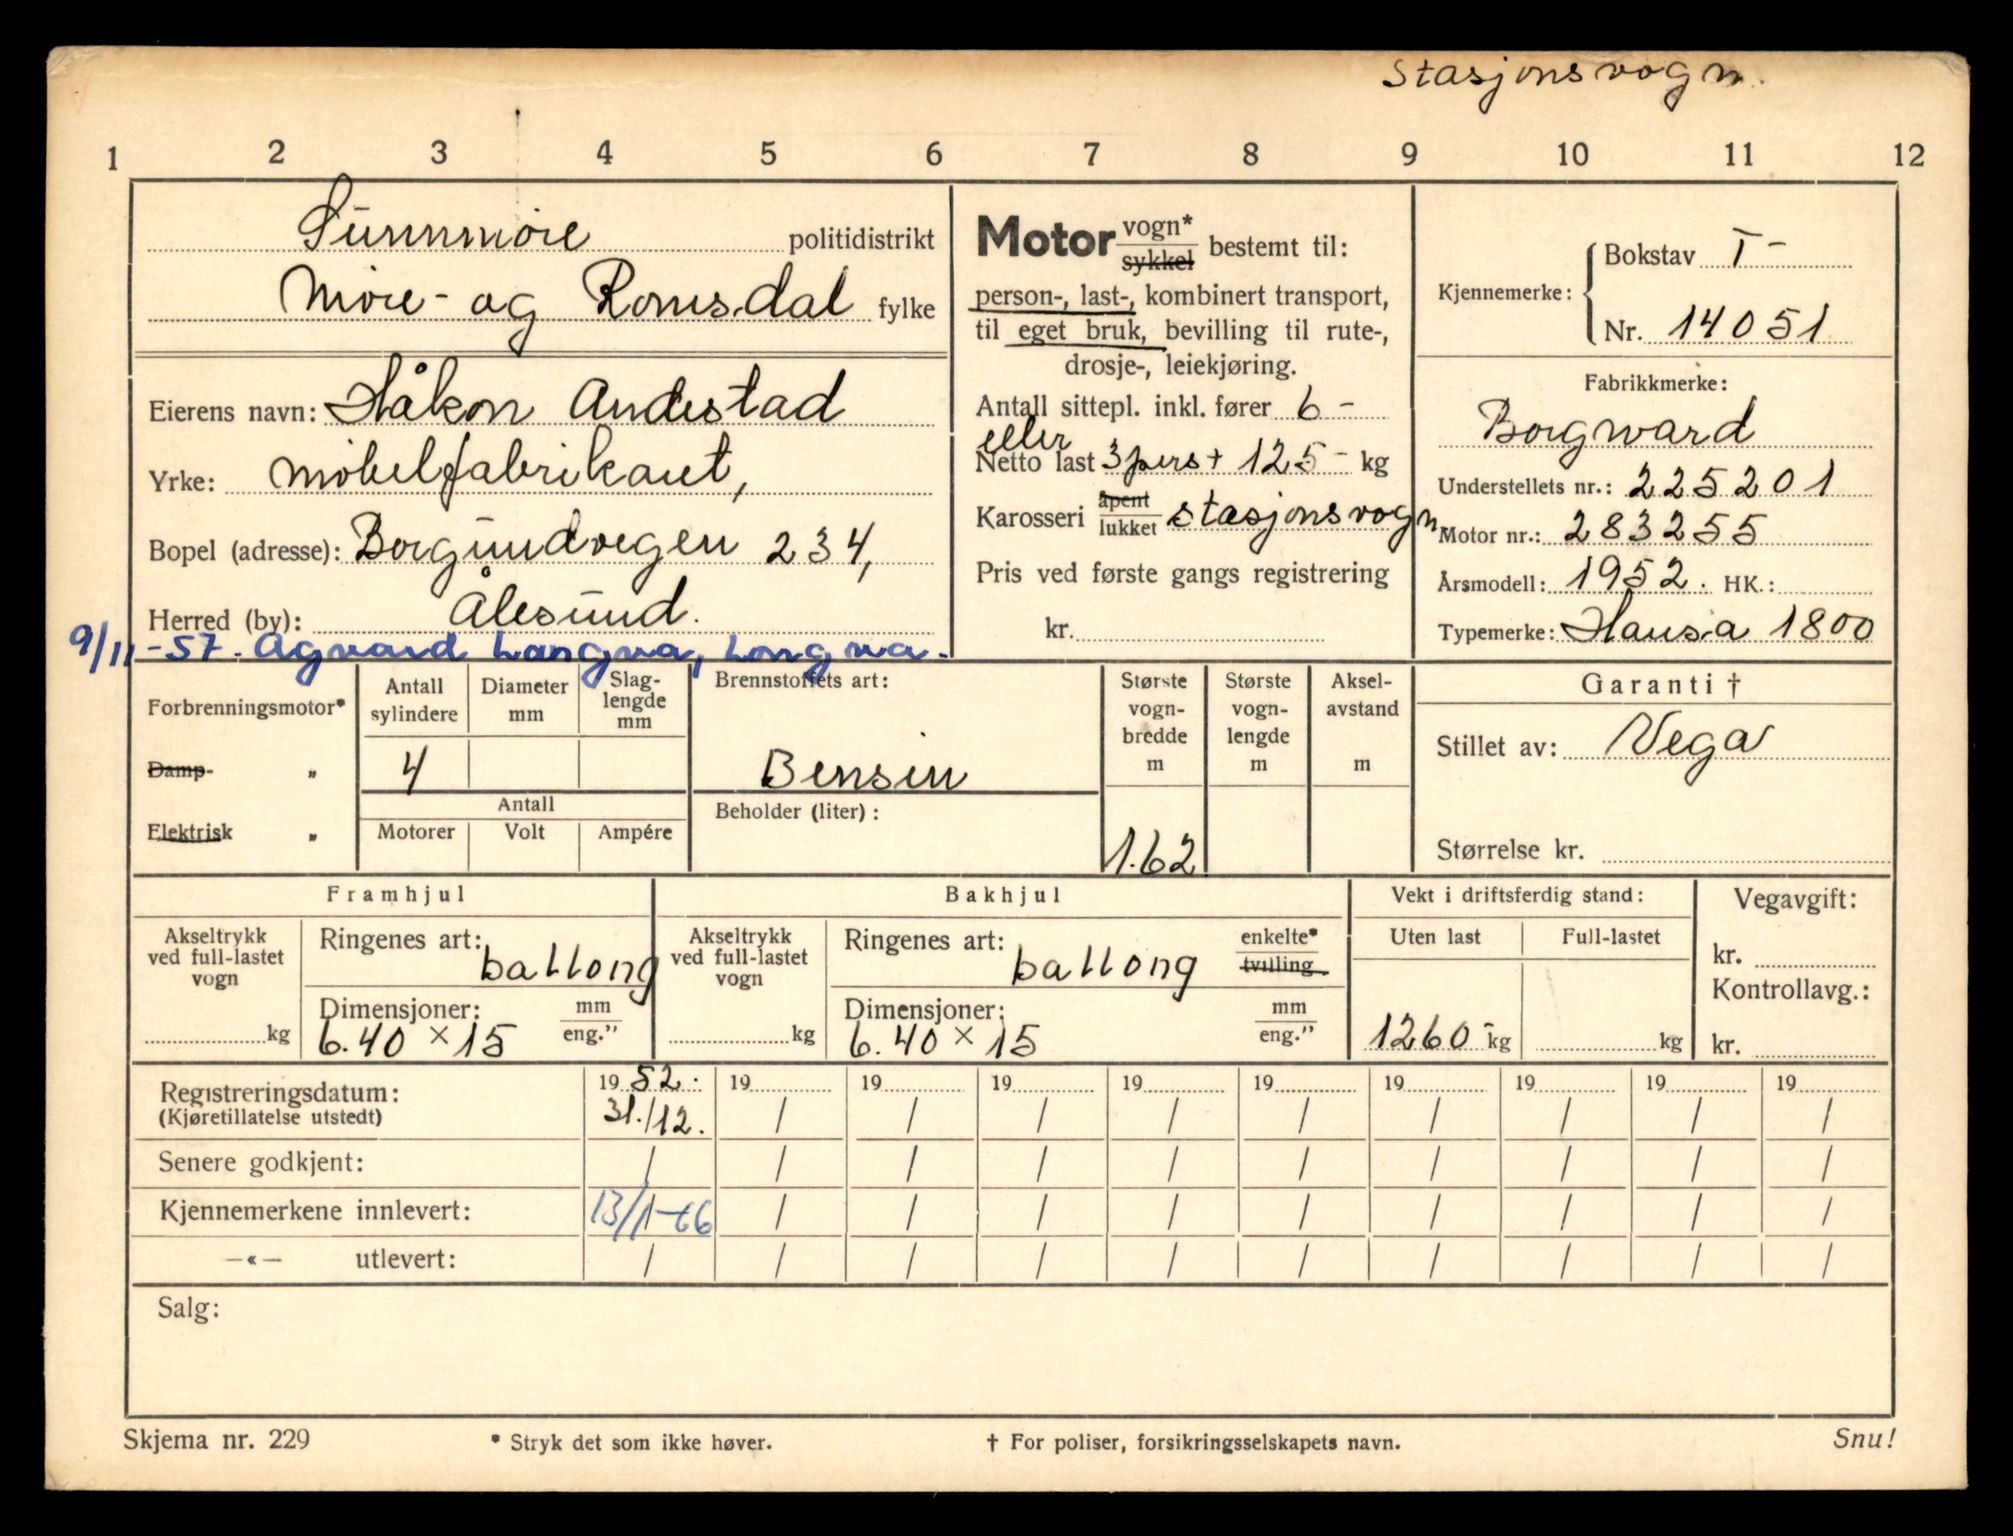 Stasjonsvogn.
1 2 3 4 5 6 7 8 9 10 11 12
Sunnmøre politidistrikt
Møre- og Romsdal fylke
Eierens navn: Håkon Andestad
Yrke: møbelfabrikant,
Bopel (adresse): Borgundvegen 234,
Herred (by): Ålesund.
9/11-57. Agvard Langva, Longva.
Motor vogn* sykkel bestemt til:
person-, last-, kombinert transport,
til eget bruk, bevilling til rute-,
drosje-, leiekjøring.
Antall sittepl. inkl. fører 6 -
eller
Netto last 3 pers + 125 - kg
Karosseri åpent lukket stasjonsvogn
Pris ved første gangs registrering
kr.
Kjennemerke: { Bokstav T -
Nr. 14051
Fabrikkmerke:
Borgward
Understellets nr.: 225201
Motor nr.: 283255
Årsmodell: 1952. HK.:
Typemerke: Hansa 1800
Forbrenningsmotor*
Damp- „
Elektrisk „
Antall sylindere Diameter mm Slaglengde mm
4
Antall
Motorer Volt Ampére
Brennstoffets art:
Bensin
Beholder (liter):
Største vogn-bredde m
1.62
Største vogn-lengde m
Aksel-avstand m
Garanti †
Stillet av: Vega
Størrelse kr.
Framhjul
Akseltrykk
ved full-lastet
vogn
kg
Ringenes art: ballong
Dimensjoner: mm
6.40 × 15 eng."
Bakhjul
Akseltrykk
ved full-lastet
vogn
kg
Ringenes art: ballong enkelte* tvilling
Dimensjoner: mm
6.40 × 15 eng."
Vekt i driftsferdig stand:
Uten last Full-lastet
1260 - kg kg
Vegavgift:
kr.
Kontrollavg.:
kr.
Registreringsdatum: 1952. 19 19 19 19 19 19 19 19 19
(Kjøretillatelse utstedt) 31./12. / / / / / / / / /
Senere godkjent: / / / / / / / / / /
Kjennemerkene innlevert: 13/1-66 / / / / / / / / /
—«— utlevert: / / / / / / / / / /
Salg:
Skjema nr. 229 * Stryk det som ikke høver. † For poliser, forsikringsselskapets navn. Snu!